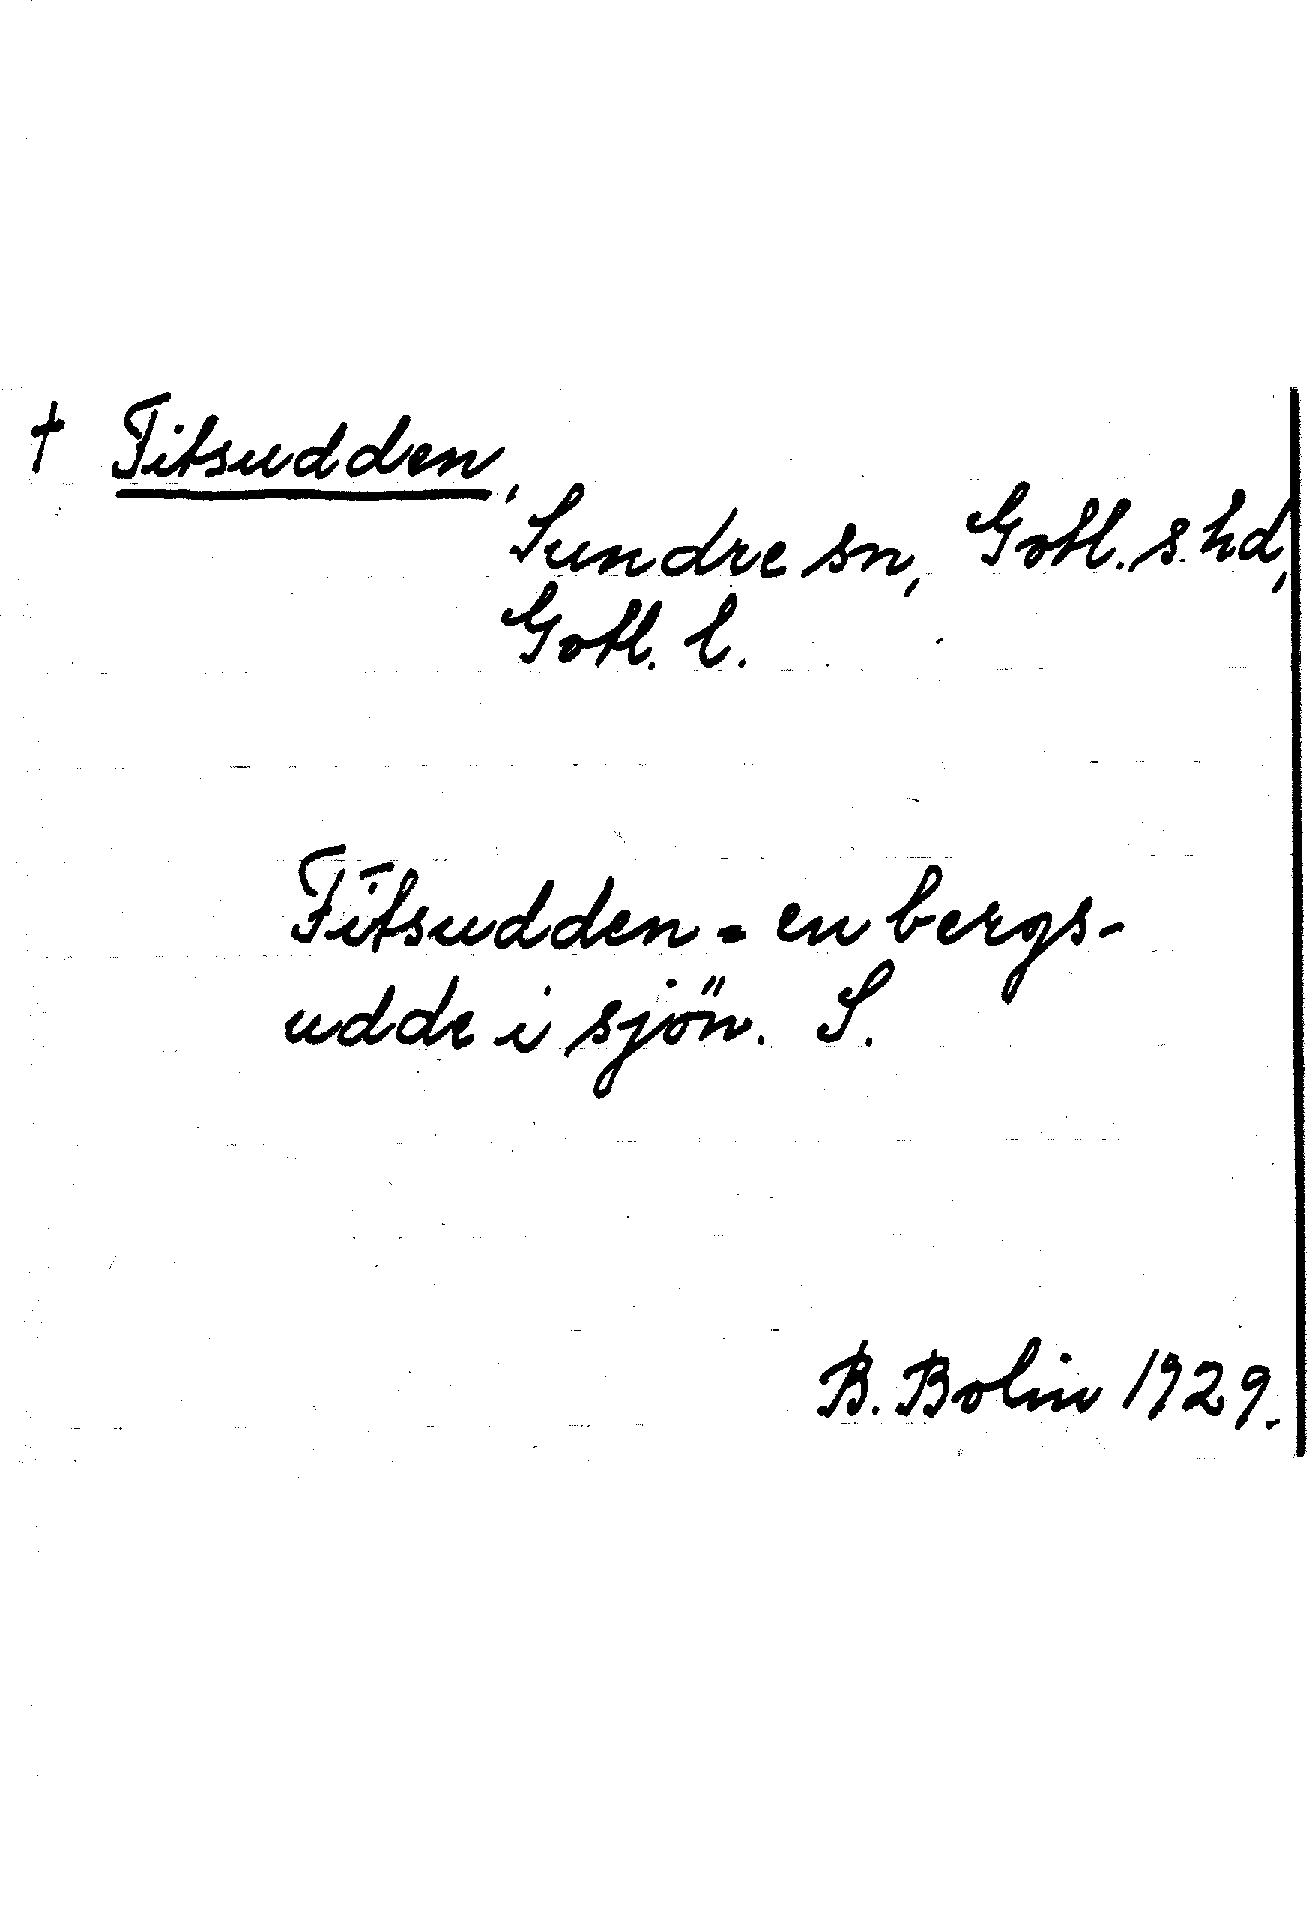 † Fitsudden,
Sundre sn, Gotl. s. hd,
Gotl. l.
Fītsudden = en bergs-
udde i sjön. S.
B. Bolin 1929.